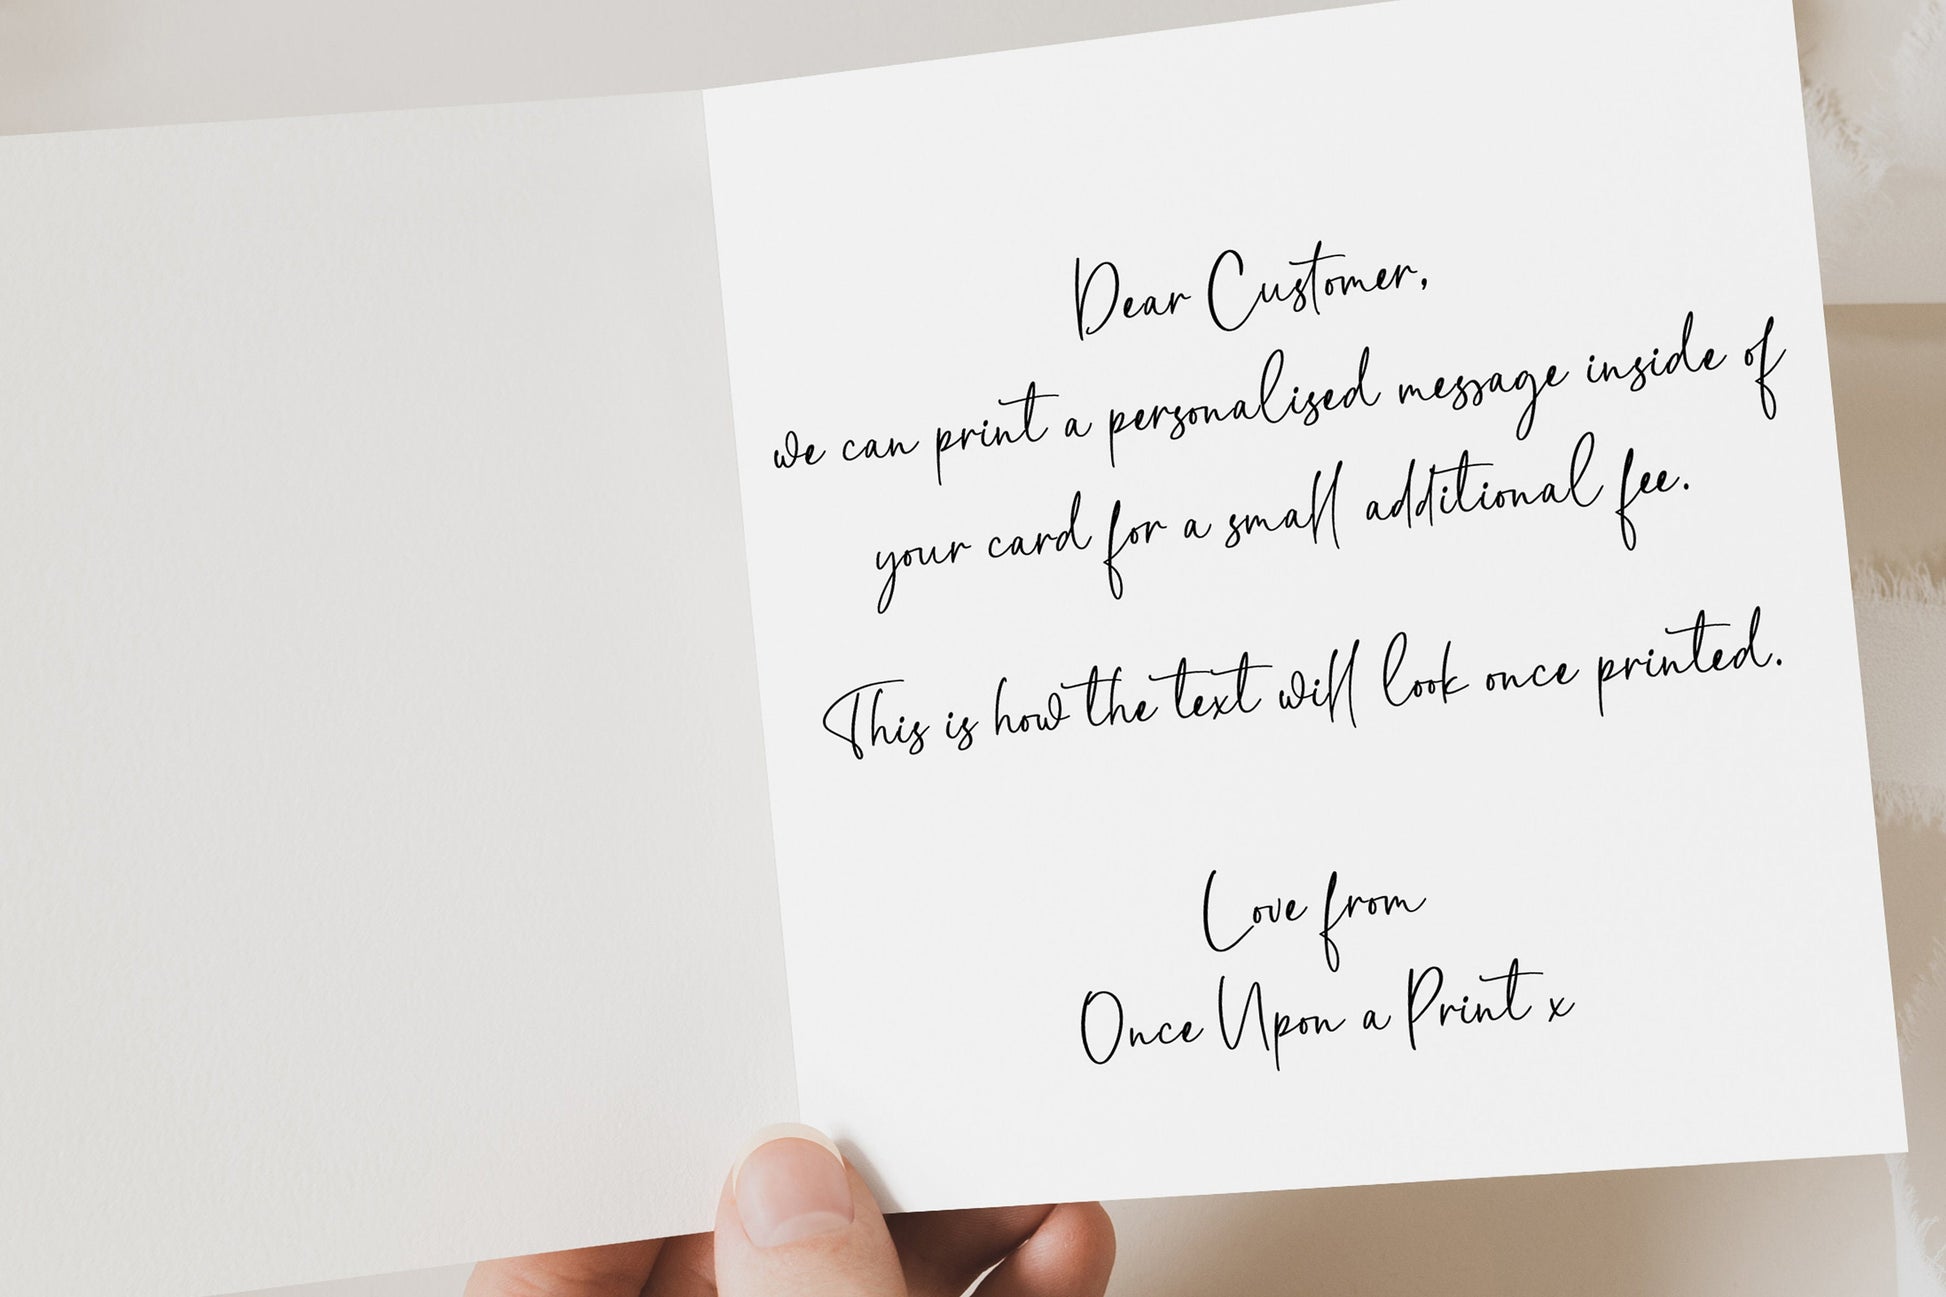 Dear Customer,
we can print a personalised message inside of
your card for a small additional fee.
This is how the text will look once printed.
Love from
Once Upon a Print x